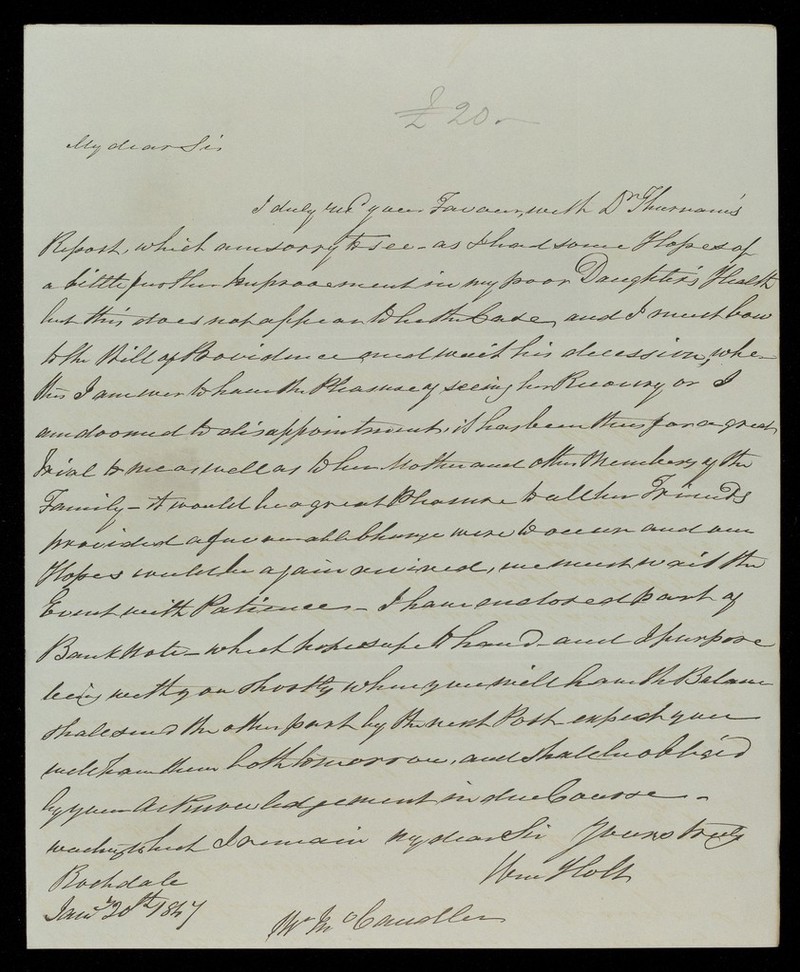 £20 –
My dear Sir
I duly rec'd your Favour, with Dr Thurnam's
Report, which am sorry to see – as I had some Hopes of
a little further improvement in my poor Daughter's Health
but this does not appear to be the Case, and I must bow
to the Will of Providence and wait his decession, whe-
ther I am ever to have the Pleasure of seeing her Recovery or I
am doomed to disappointment, it has been thus far a great
trial to me as well as to her Mother and other Members of the
Family – it would be a great Pleasure to all her Friends
provided a favourable Change were to occur and our
Hopes could be again revived, we must wait the
Event with Patience – I have enclosed part of
Bank Note – which hope safe to hand – and I purpose
being with you shortly when you will have the Balance
shall send the other part by the next Post expect you
will have them both tomorrow, and shall be oblig'd
by your Acknowledgement in due Course –
I remain my dear Sir Yours truly
Wm Holt
Rochdale
Jany 20th 1847
Mr Candler